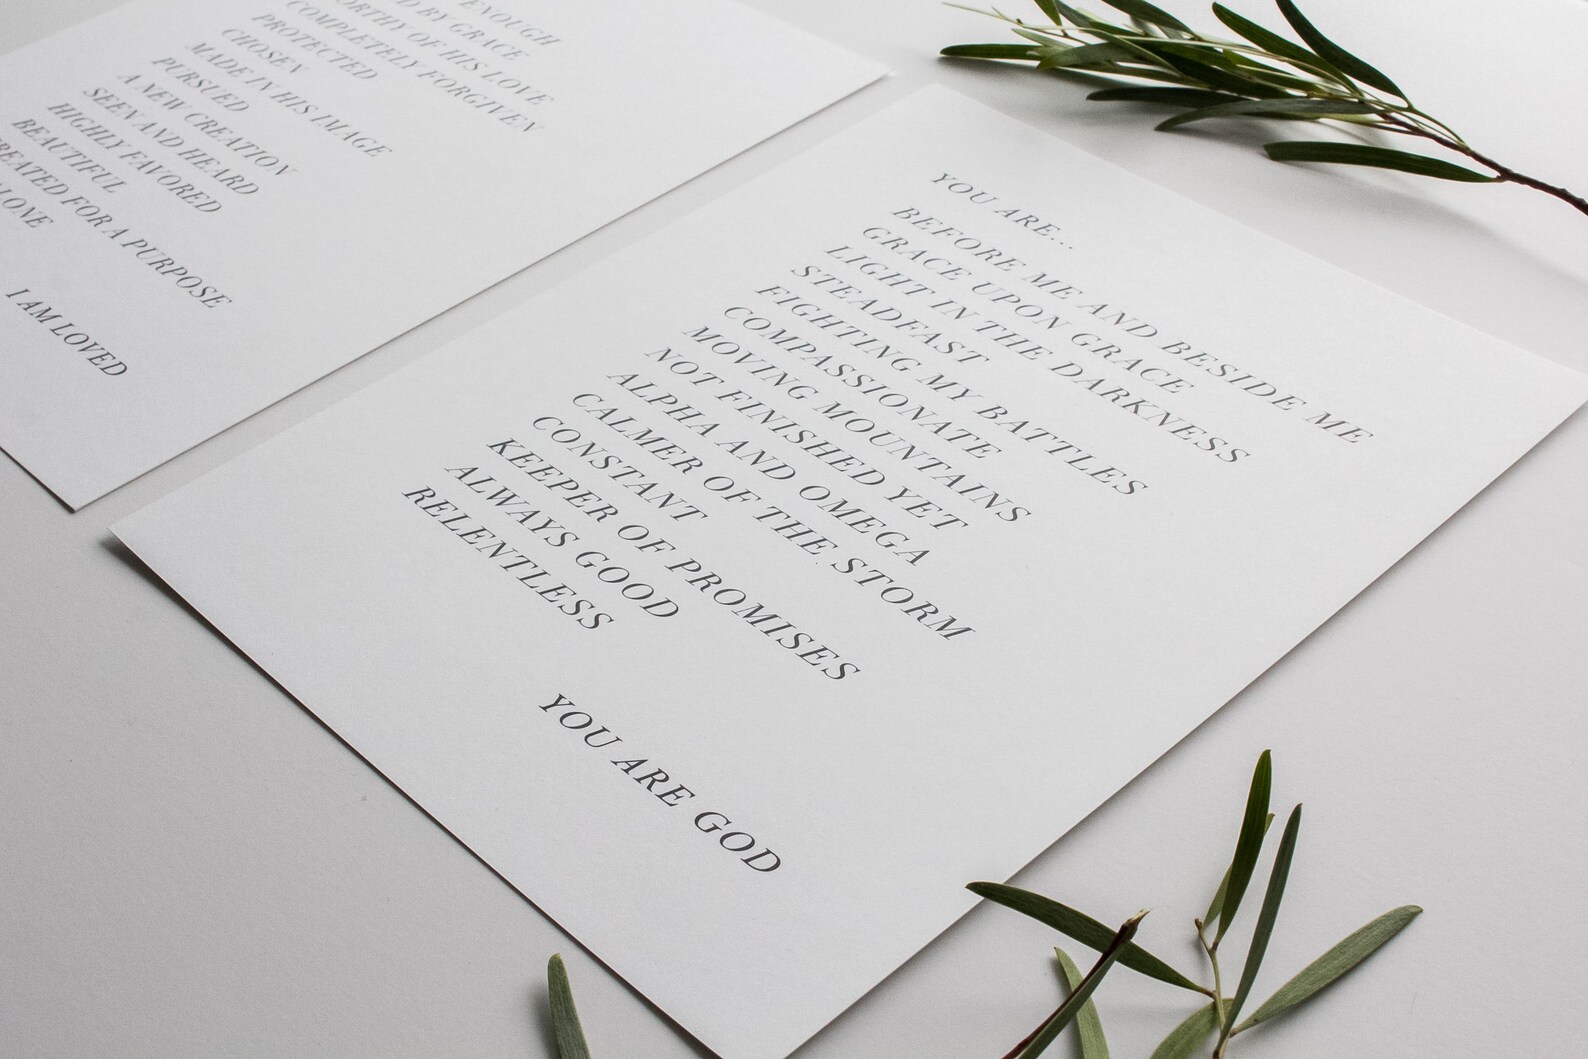 ENOUGH
BY GRACE
OF HIS LOVE
COMPLETELY FORGIVEN
PROTECTED
CHOSEN
MADE IN HIS IMAGE
PURSUED
A NEW CREATION
SEEN AND HEARD
HIGHLY FAVORED
BEAUTIFUL
FOR A PURPOSE
I AM LOVED
YOU ARE...
BEFORE ME AND BESIDE ME
GRACE UPON GRACE
LIGHT IN THE DARKNESS
STEADFAST
FIGHTING MY BATTLES
COMPASSIONATE
MOVING MOUNTAINS
NOT FINISHED YET
ALPHA AND OMEGA
CALMER OF THE STORM
CONSTANT
KEEPER OF PROMISES
ALWAYS GOOD
RELENTLESS
YOU ARE GOD